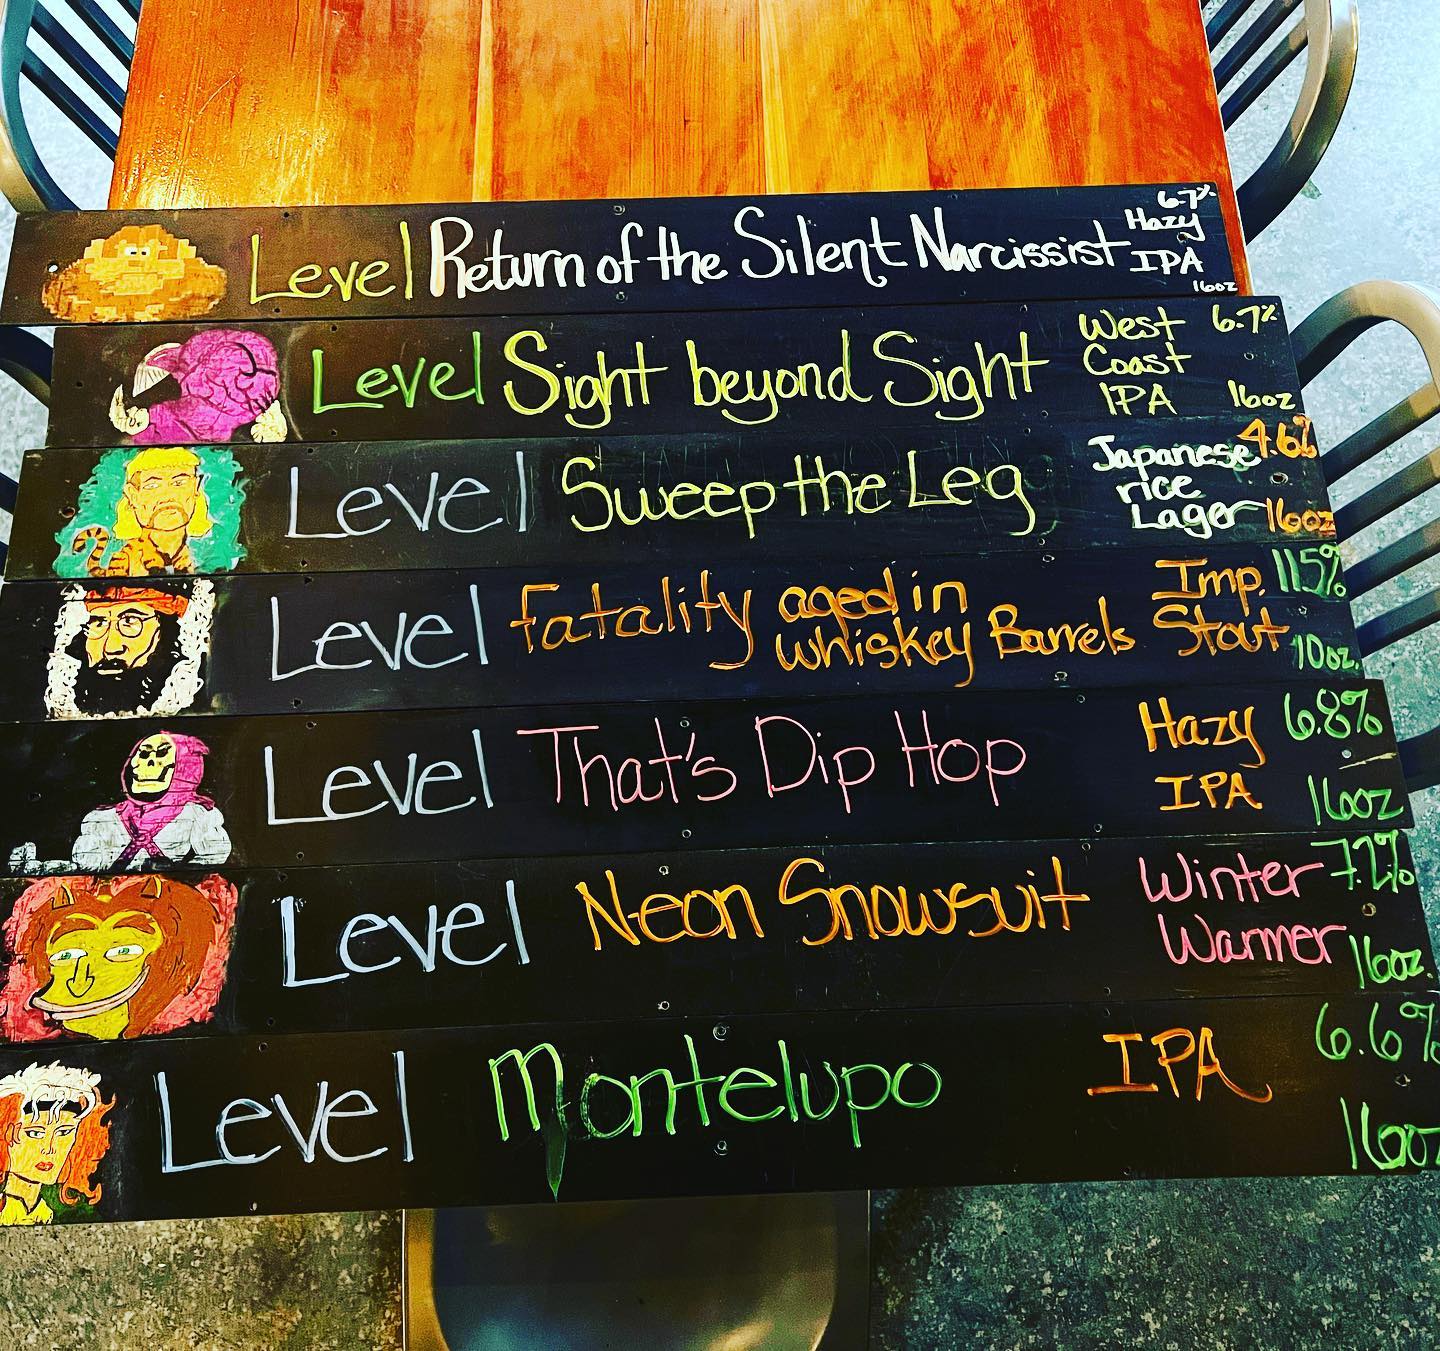 Level Return of the Silent Narcissist 6.7% Hazy IPA 16oz
Level Sight beyond Sight West Coast IPA 6.7% 16oz
Level Sweep the Leg Japanese rice Lager 4.6% 16oz
Level Fatality aged in whiskey Barrels Imp. Stout 11.5% 10oz.
Level That's Dip Hop Hazy IPA 6.8% 16oz
Level Neon Snowsuit Winter Warmer 7.2% 16oz.
Level Montelupo IPA 6.6% 16oz